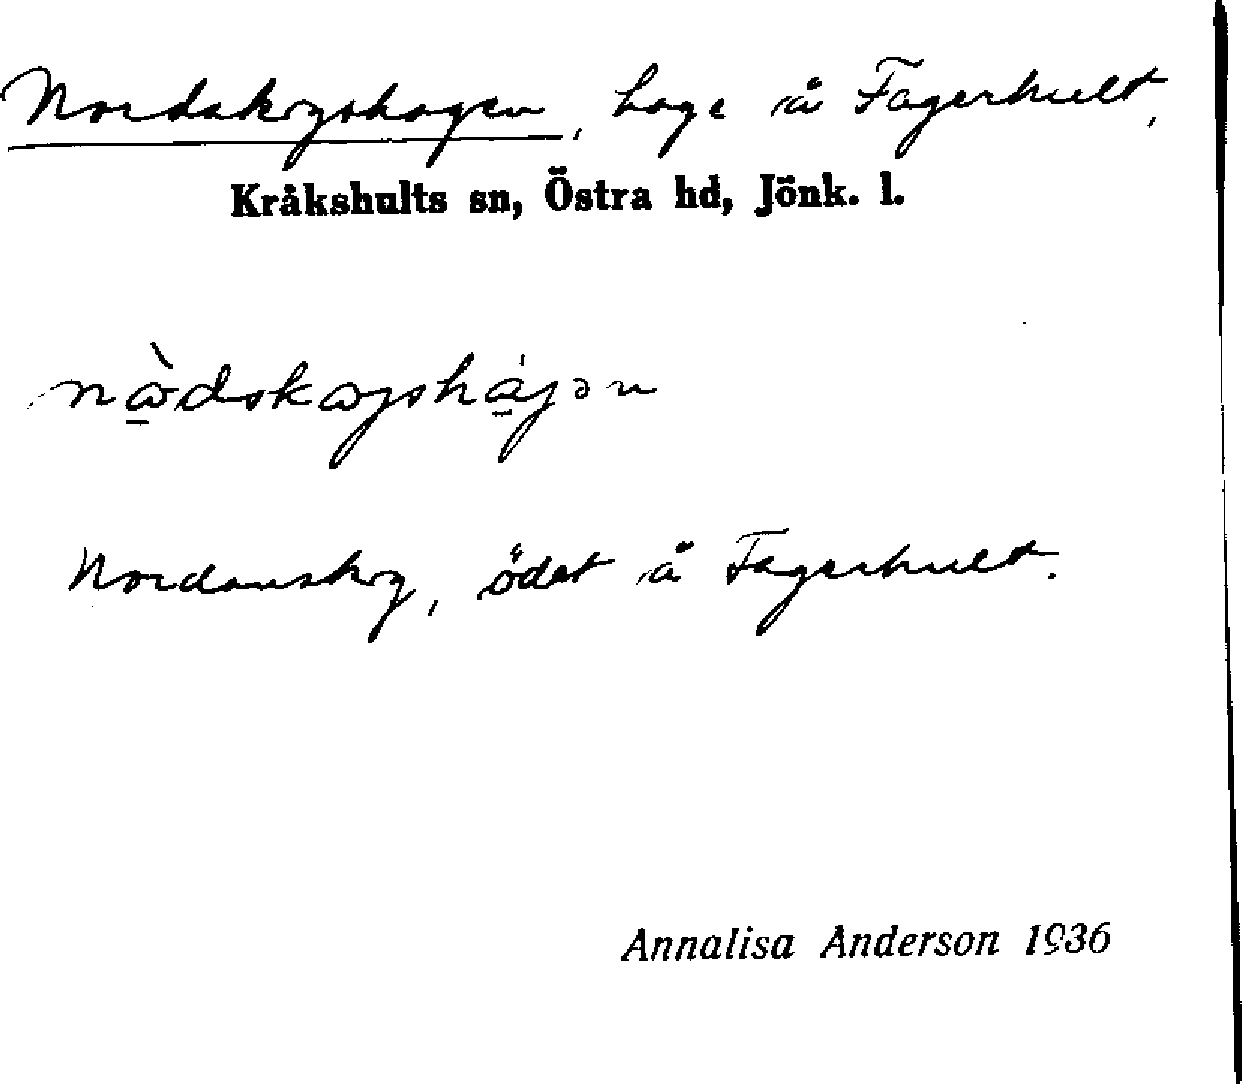 Nordskogshagen, hage å Fagerhult,
Kråkshults sn, Östra hd, Jönk. l.
Nordanskog, ödet å Fagerhult.
Annalisa Anderson 1936